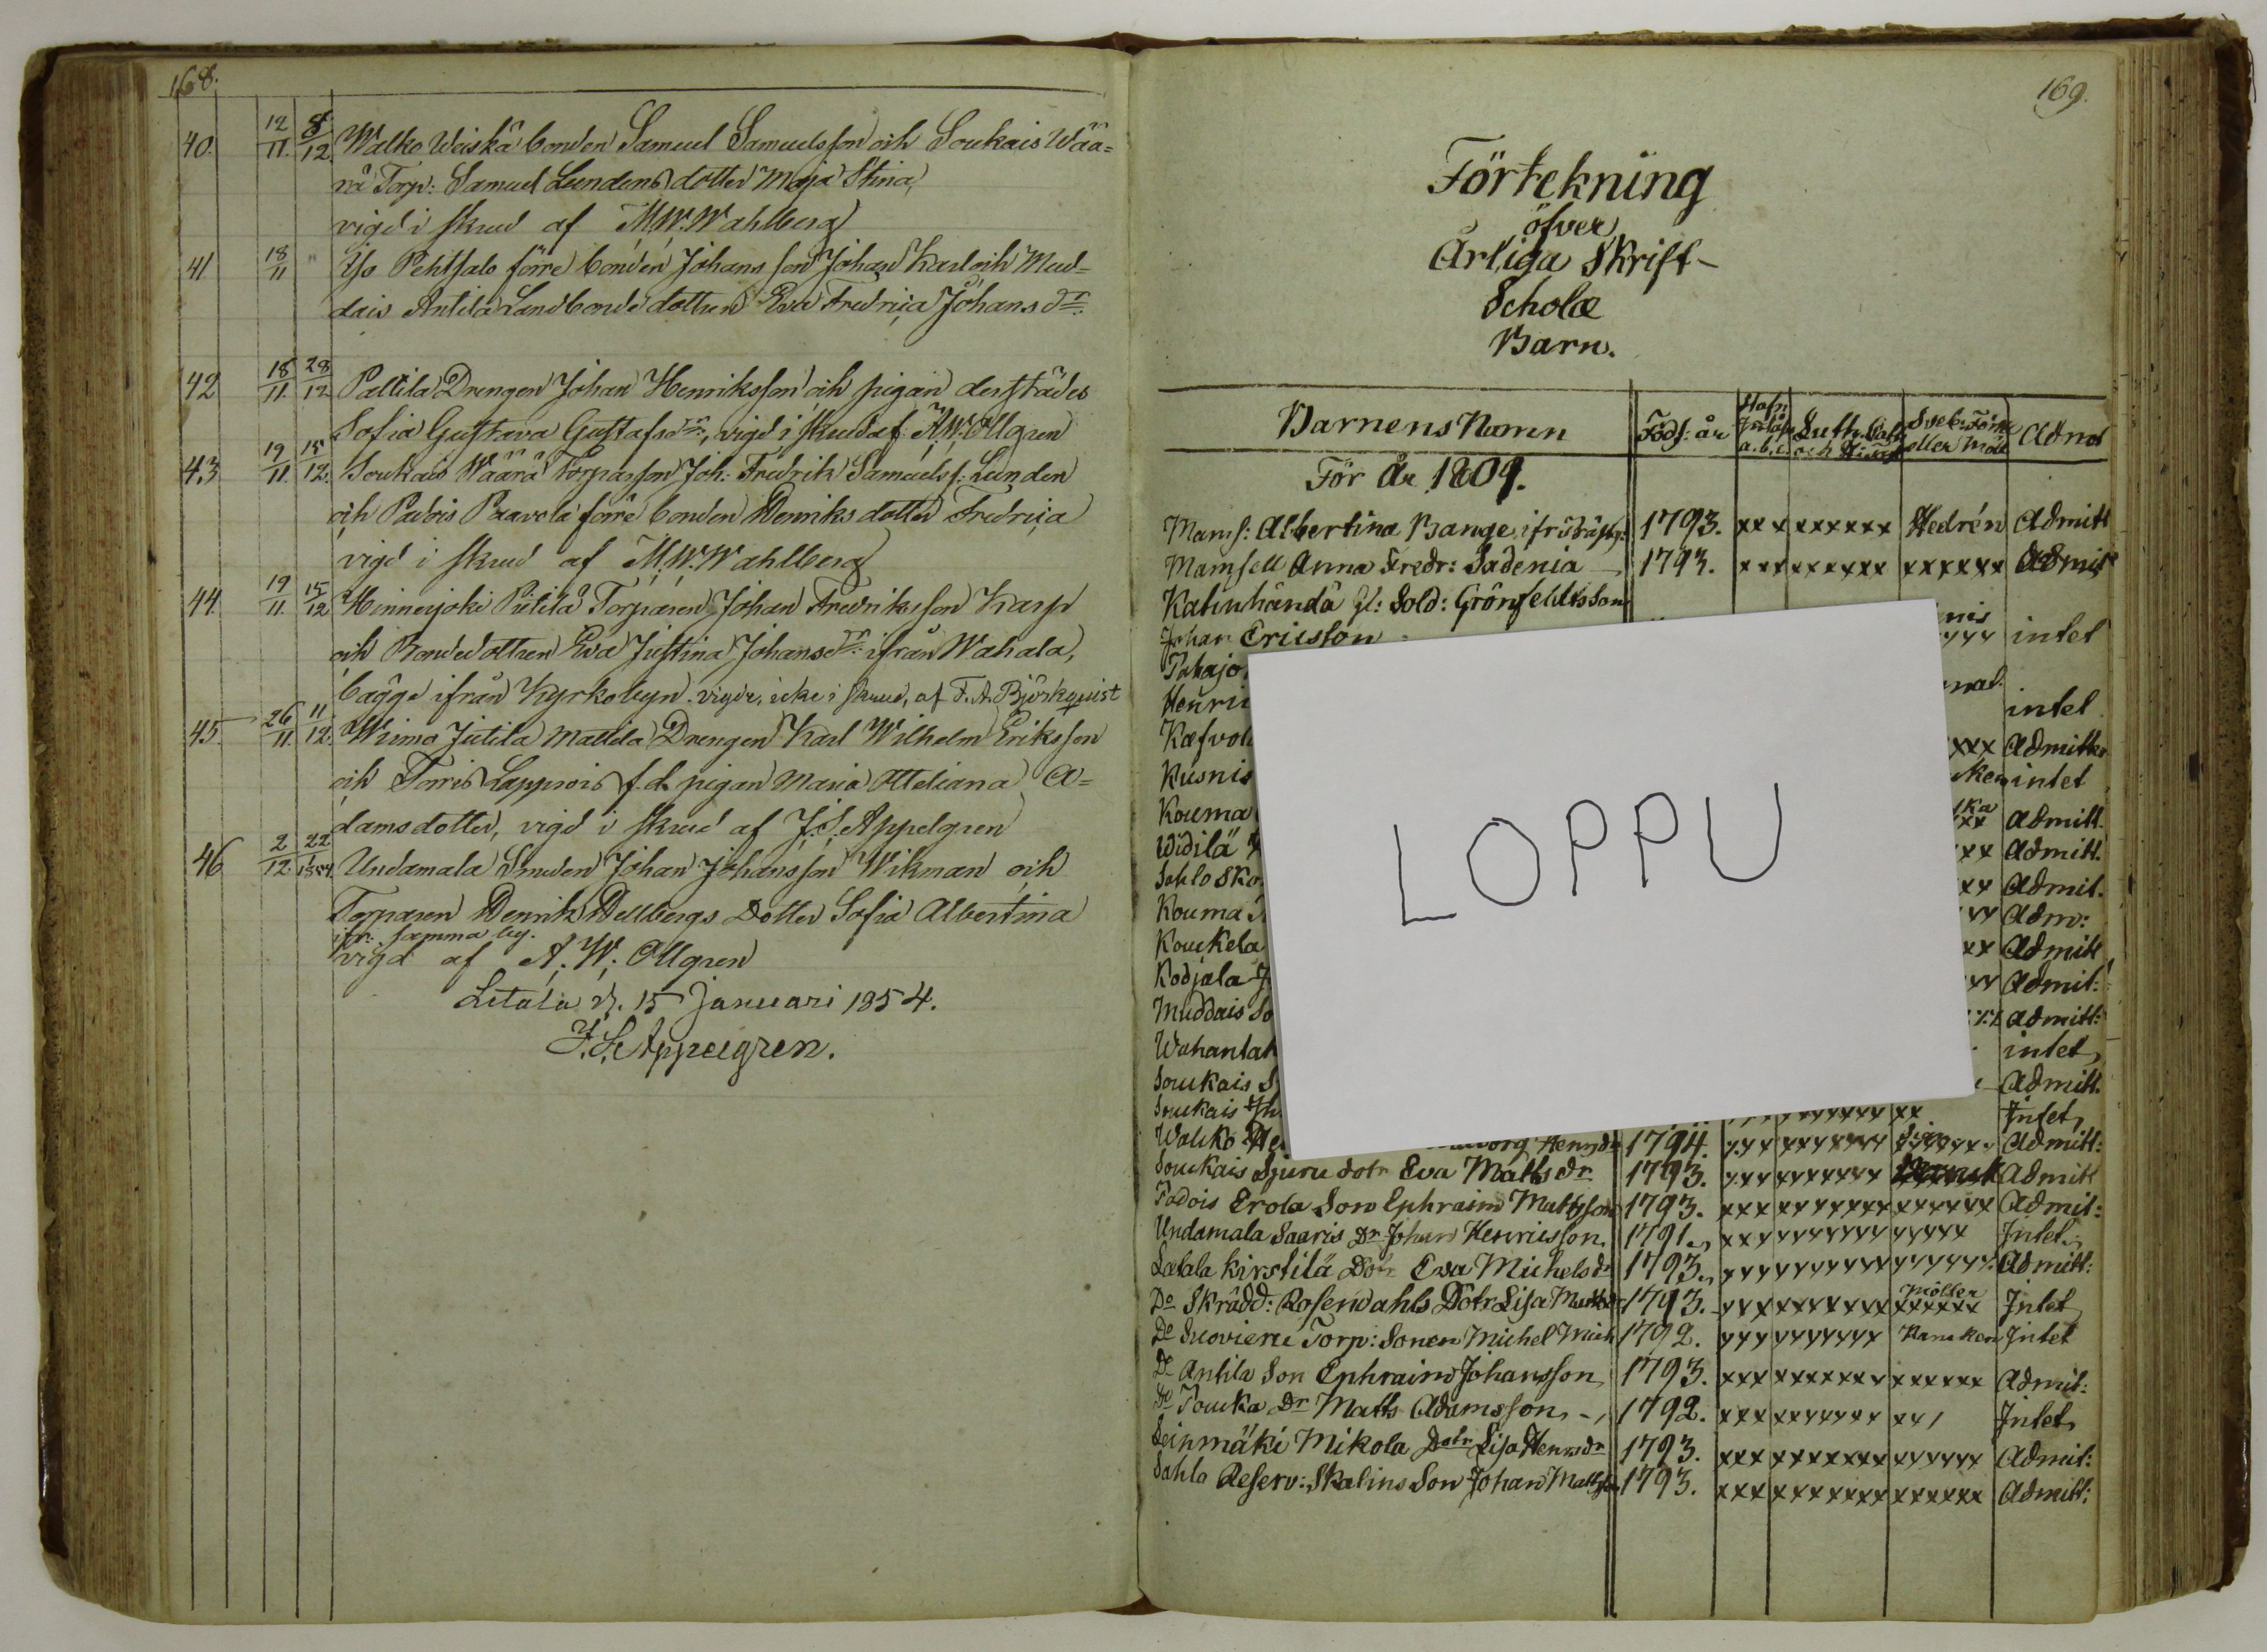 168.
40. 12/11. 8/12. Walko Weiskä bonden Samuel Samuelsson och Soukais Wää=
rä Torp: Samuel Lundens dotter Maja Stina,
vigd i skrud af M.W. Wahlberg
41 18/11 " Iso Pehtsalo förre bonden Johans son Johan Karl och Mud=
dais Antila Landbonde dottren Eva Fredrica Johans dr.
42 18/11. 28/12 Pattila Drengen Johan Henriksson och pigan derstädes
Sofia Gustava Gustafsdr., vigd i skrud af A.W. Ollgren
43 19/11. 15/12. Soukais Wäärä Torparson Joh: Fredrik Samuels s: Lunden
och Padois Paavola förre bonden Henriks dotter Fredrica
vigd i skrud af M.W. Wahlberg
44. 19/11. 15/12 Hinnerjoki Pietilä Torparen Johan Fredriksson Karp
och Bondedottren Eva Justina Johansdr. ifrån Wahala,
bägge ifrån Kyrkobyn. vigde, icke i skrud, af F.A. Björkquist
45. 26/11. 11/12. Wiimo Jutila Mattila Drengen Karl Wilhelm Eriksson
och Torris Lappois f.d. pigan Maria Otteliana A=
damsdotter, vigd i skrud af J.S. Appelgren
46 2/12. 22/1 1854. Undamala Smeden Johan Johansson Wikman och
Torparen Henrik Hellbergs Dotter Sofia Albertina
ifr. samma by.
vigd af A.W. Ollgren
Letala d. 15 Januari 1854.
J.S. Appelgren.
169.
Förtekning
öfver
Årliga Skrift-
Scholæ
Barn.
Barnens Namn Föds: år a.b.c. Luth. Cat. och Sveb: Förkl. eller Möll Admit
För År 1809.
Mams: Albertina Bange ifr 1793. xxx xxxxxx Hedrén Admitt
Mamsell Anna Fredr: Sadenia 1793. xxx xxxxxx xxxxxx Admit
Katinhändä gl: Sold: Grönfeldts Son
Johan Ericsson yyy intet
Henri intet
xxx Admitt
Kusnis intet
Kouma xx Admitt.
Widilä xx Admitt.
Sahlo Sko xx Admit.
Kouma yy Adm:
Koukela xx Admitt
Kodjala yy Admit:
Muddais So Admitt:
Wahantak intet
Soukais S Admitt.
Soukais Jh xx Intet,
LOPPU
Walko He 1794. Admitt:
Soukais Sjuru dotr Eva Matts dr 1793. Admit
Padois Erola Son Ephraim Mattsson 1793. xxx xxxxxxx xxxxxx Admit:
Undamala Saaris Dr Johan Henricsson. 1791. xxy yyyyyyy yyyyy Intet
Letala Kirstilä Dotr Eva Michels dr 1793. yyy yyyyyyy yyyyyy Admitt:
Do Skrädd: Rosendahls Dotr Lisa Matts dr 1793. Möller Intet
Do Suovieru Torp: Sonen Michel Mich 1792. yyy yyyyyyy Kansken Intet
Do Antila Son Ephraim Johansson 1793. xxx xxxxxxx xxxxxx Admit:
Do Pouka Dr Matts Adamsson 1792. xxx xxyyyyx xx/ Intet
Leinmäki Mikola Dotr Lisa Henrsdr 1793. xxx xxxxxxx yyyyyy Admit:
Sahla Reserv: Skalins Son Johan Mattsson 1793. xxx xxxxxxx xxxxxx Admitt: